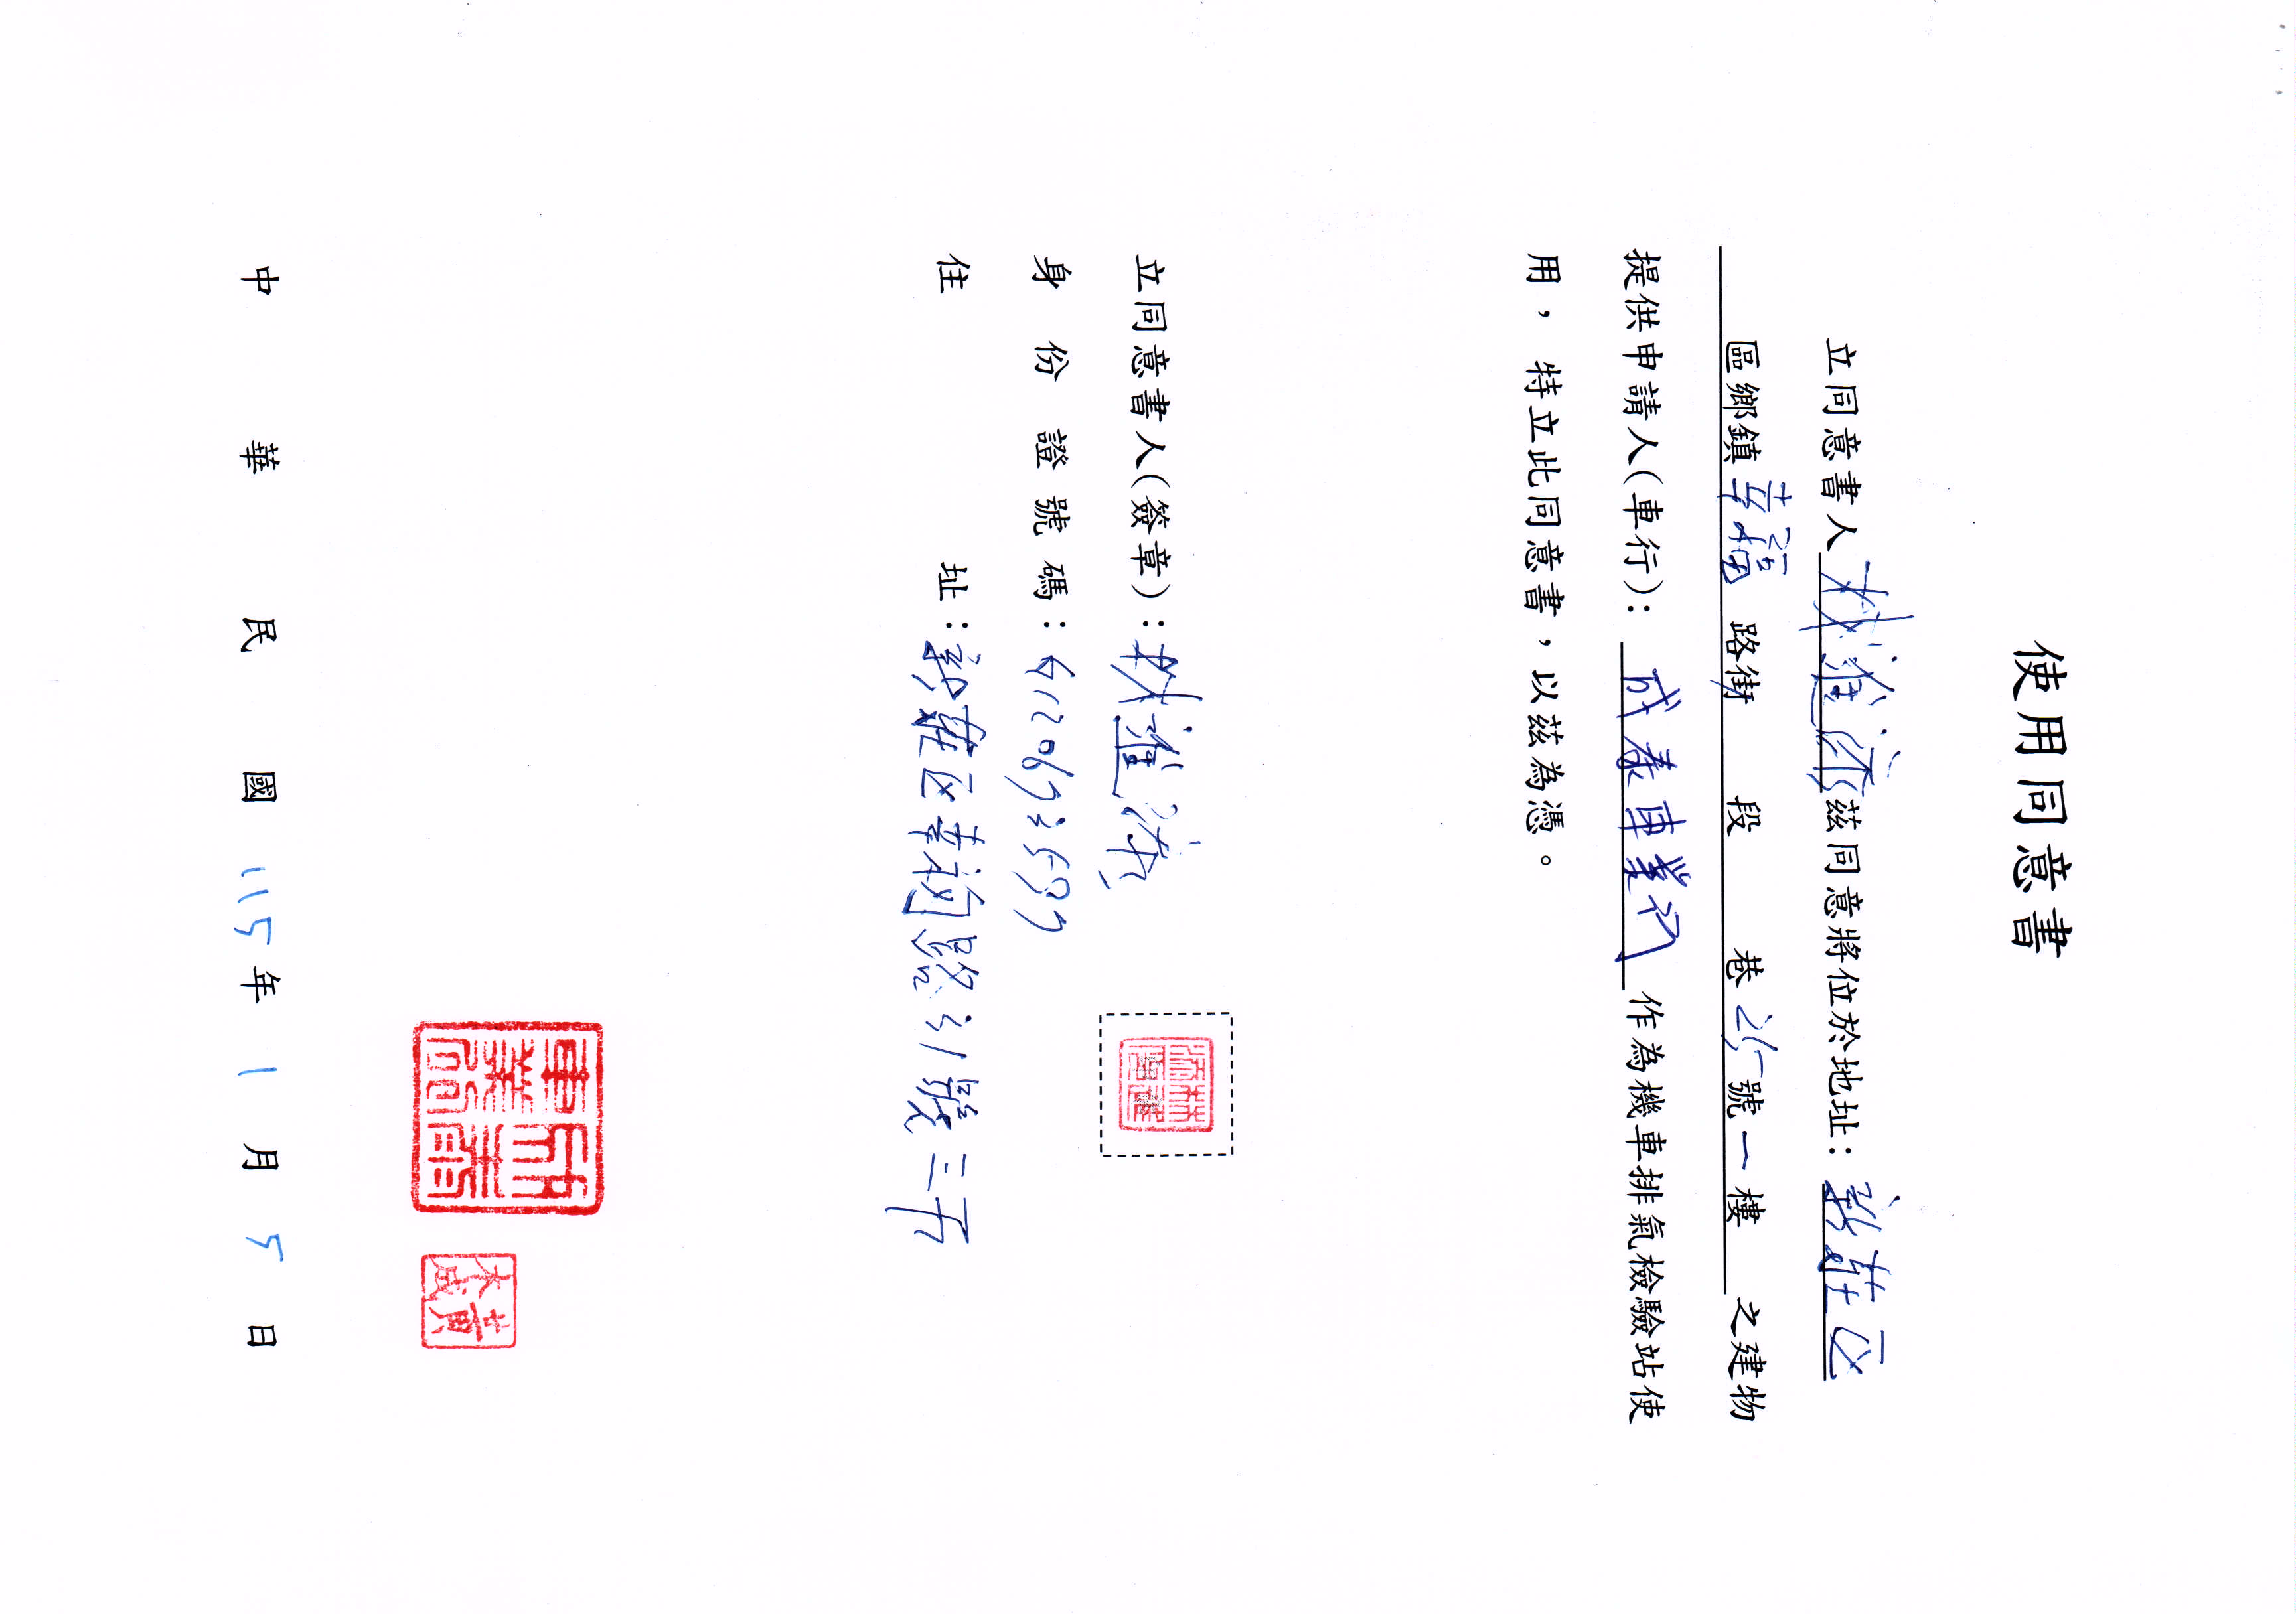 使用同意書
立同意書人 林進 茲同意將位於地址：新莊区
區鄉鎮 幸福 路街 段 巷 號一樓 之建物
提供申請人(車行)： 成泰車業行 作為機車排氣檢驗站使
用，特立此同意書，以茲為憑。
立同意書人(簽章)：林進
身份證號碼：
住址：新莊区幸福路 號三
黃
太成
中華民國 115 年 1 月 5 日